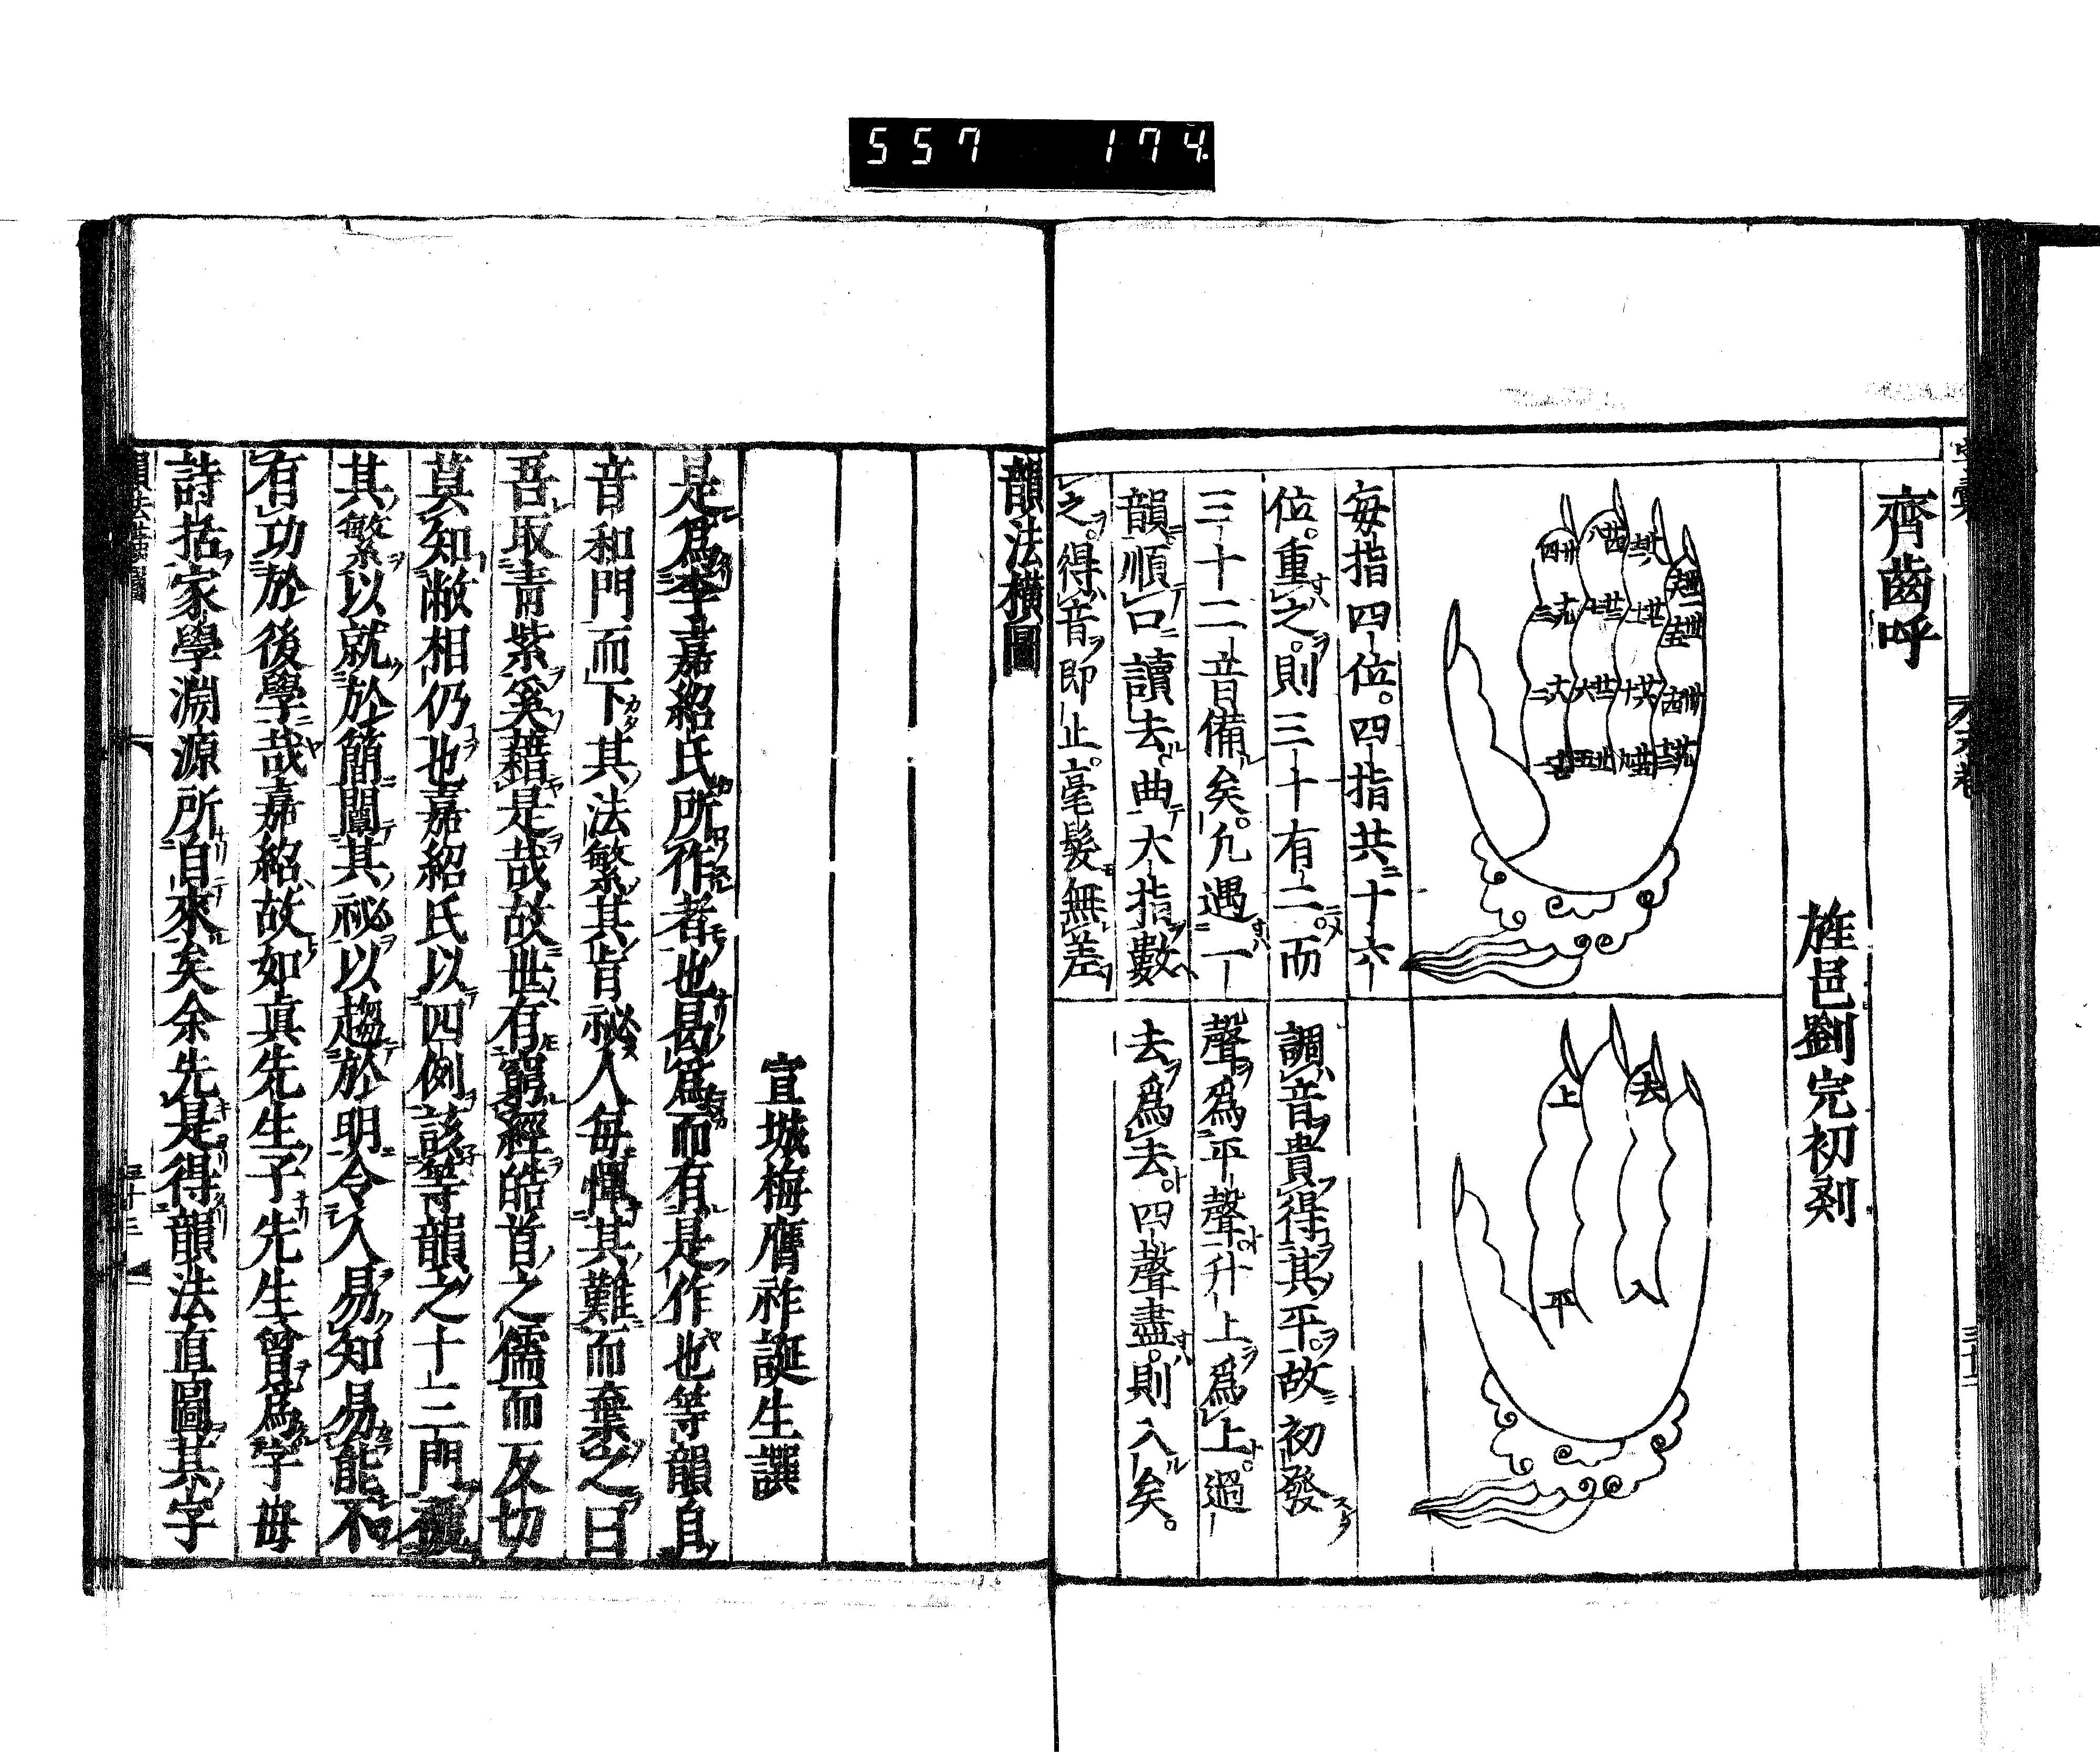 557 174.
齊齒呼
旌邑劉完初刻
上
去
平
入
每指四位。四指共十六
位。重之。則三十有二。而
三十二音備矣。凢遇一
韻順口讀去曲大指數
之。得音即止。毫髮無差
調音貴得其平。故初發
聲爲平聲升上爲上。過
去爲去。四聲盡。則入矣。
韻法横圖
宣城梅膺祚誕生譔
是爲李嘉紹氏所作者也曷爲而有是作也等韻自
音和門而下其法繁其旨祕人每憚其難而棄之曰
吾取青紫奚藉是哉故世有窮經皓首之儒而反切
莫知敝相仍也嘉紹氏以四例該等韻之十三門
其繁以就於簡闡其祕以趨於明令人易知易能不
有功於後學哉嘉紹故如真先生子先生曾爲字毋
詩括家學淵源所自來矣余先是得韻法直圖其字